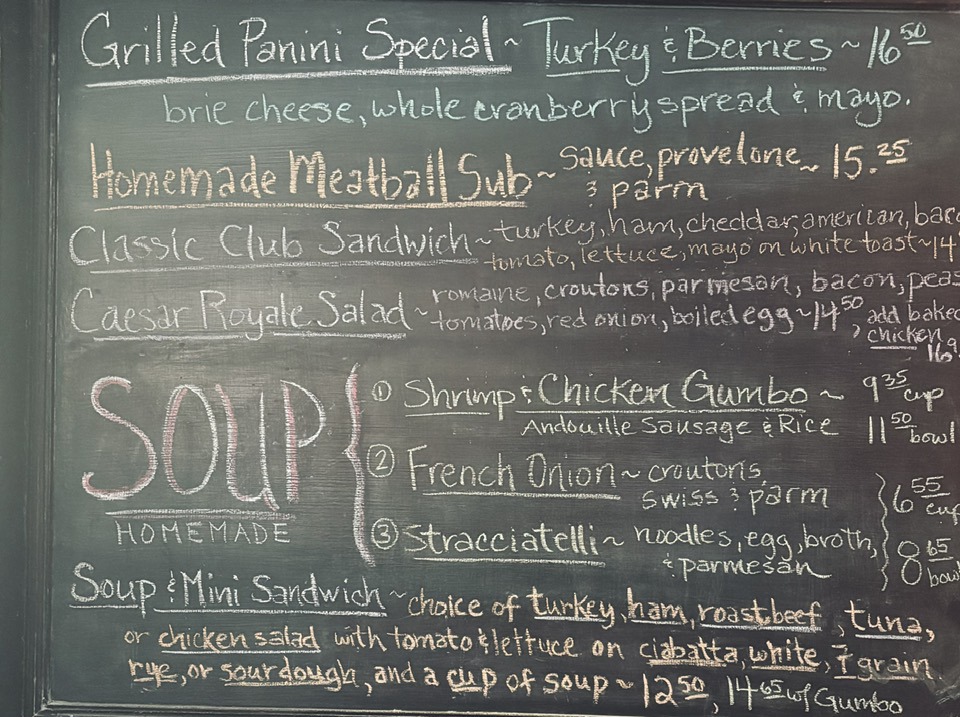 Grilled Panini Special ~ Turkey & Berries ~ 16 50
brie cheese, whole cranberry spread & mayo.
Homemade Meatball Sub ~ sauce, provelone ~ 15.25
& parm
Classic Club Sandwich ~ turkey, ham, cheddar, american, bac
tomato, lettuce, mayo on white toast ~ 14
Caesar Royale Salad ~ romaine, croutons, parmesan, bacon, peas
tomatoes, red onion, boiled egg ~ 14 50, add baked
chicken
SOUP
HOMEMADE
① Shrimp & Chicken Gumbo ~ 9 35 cup
Andouille Sausage & Rice 11 50 bowl
② French Onion ~ croutons,
swiss & parm
6 55 cup
③ Stracciatelli ~ noodles, egg, broth,
& parmesan
8 65 bowl
Soup & Mini Sandwich ~ choice of turkey, ham, roast beef, tuna,
or chicken salad with tomato & lettuce on ciabatta, white, 7 grain
rye, or sourdough, and a cup of soup ~ 12 50, 14 65 w/ Gumbo